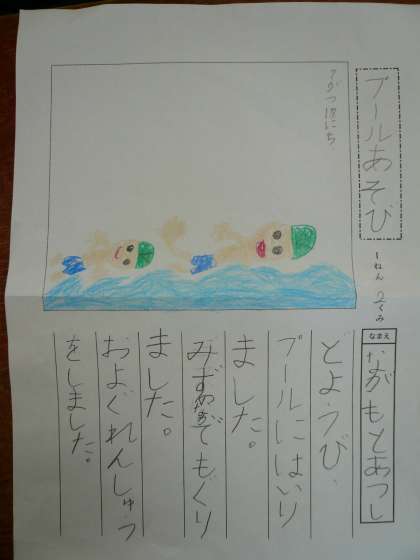 プールあそび
1ねん2くみ
なまえ
ながもとあつし
7がつ18にち
どようび、
プールにはいり
ました。
みずめがねでもぐり
ました。
およぐれんしゅう
をしました。